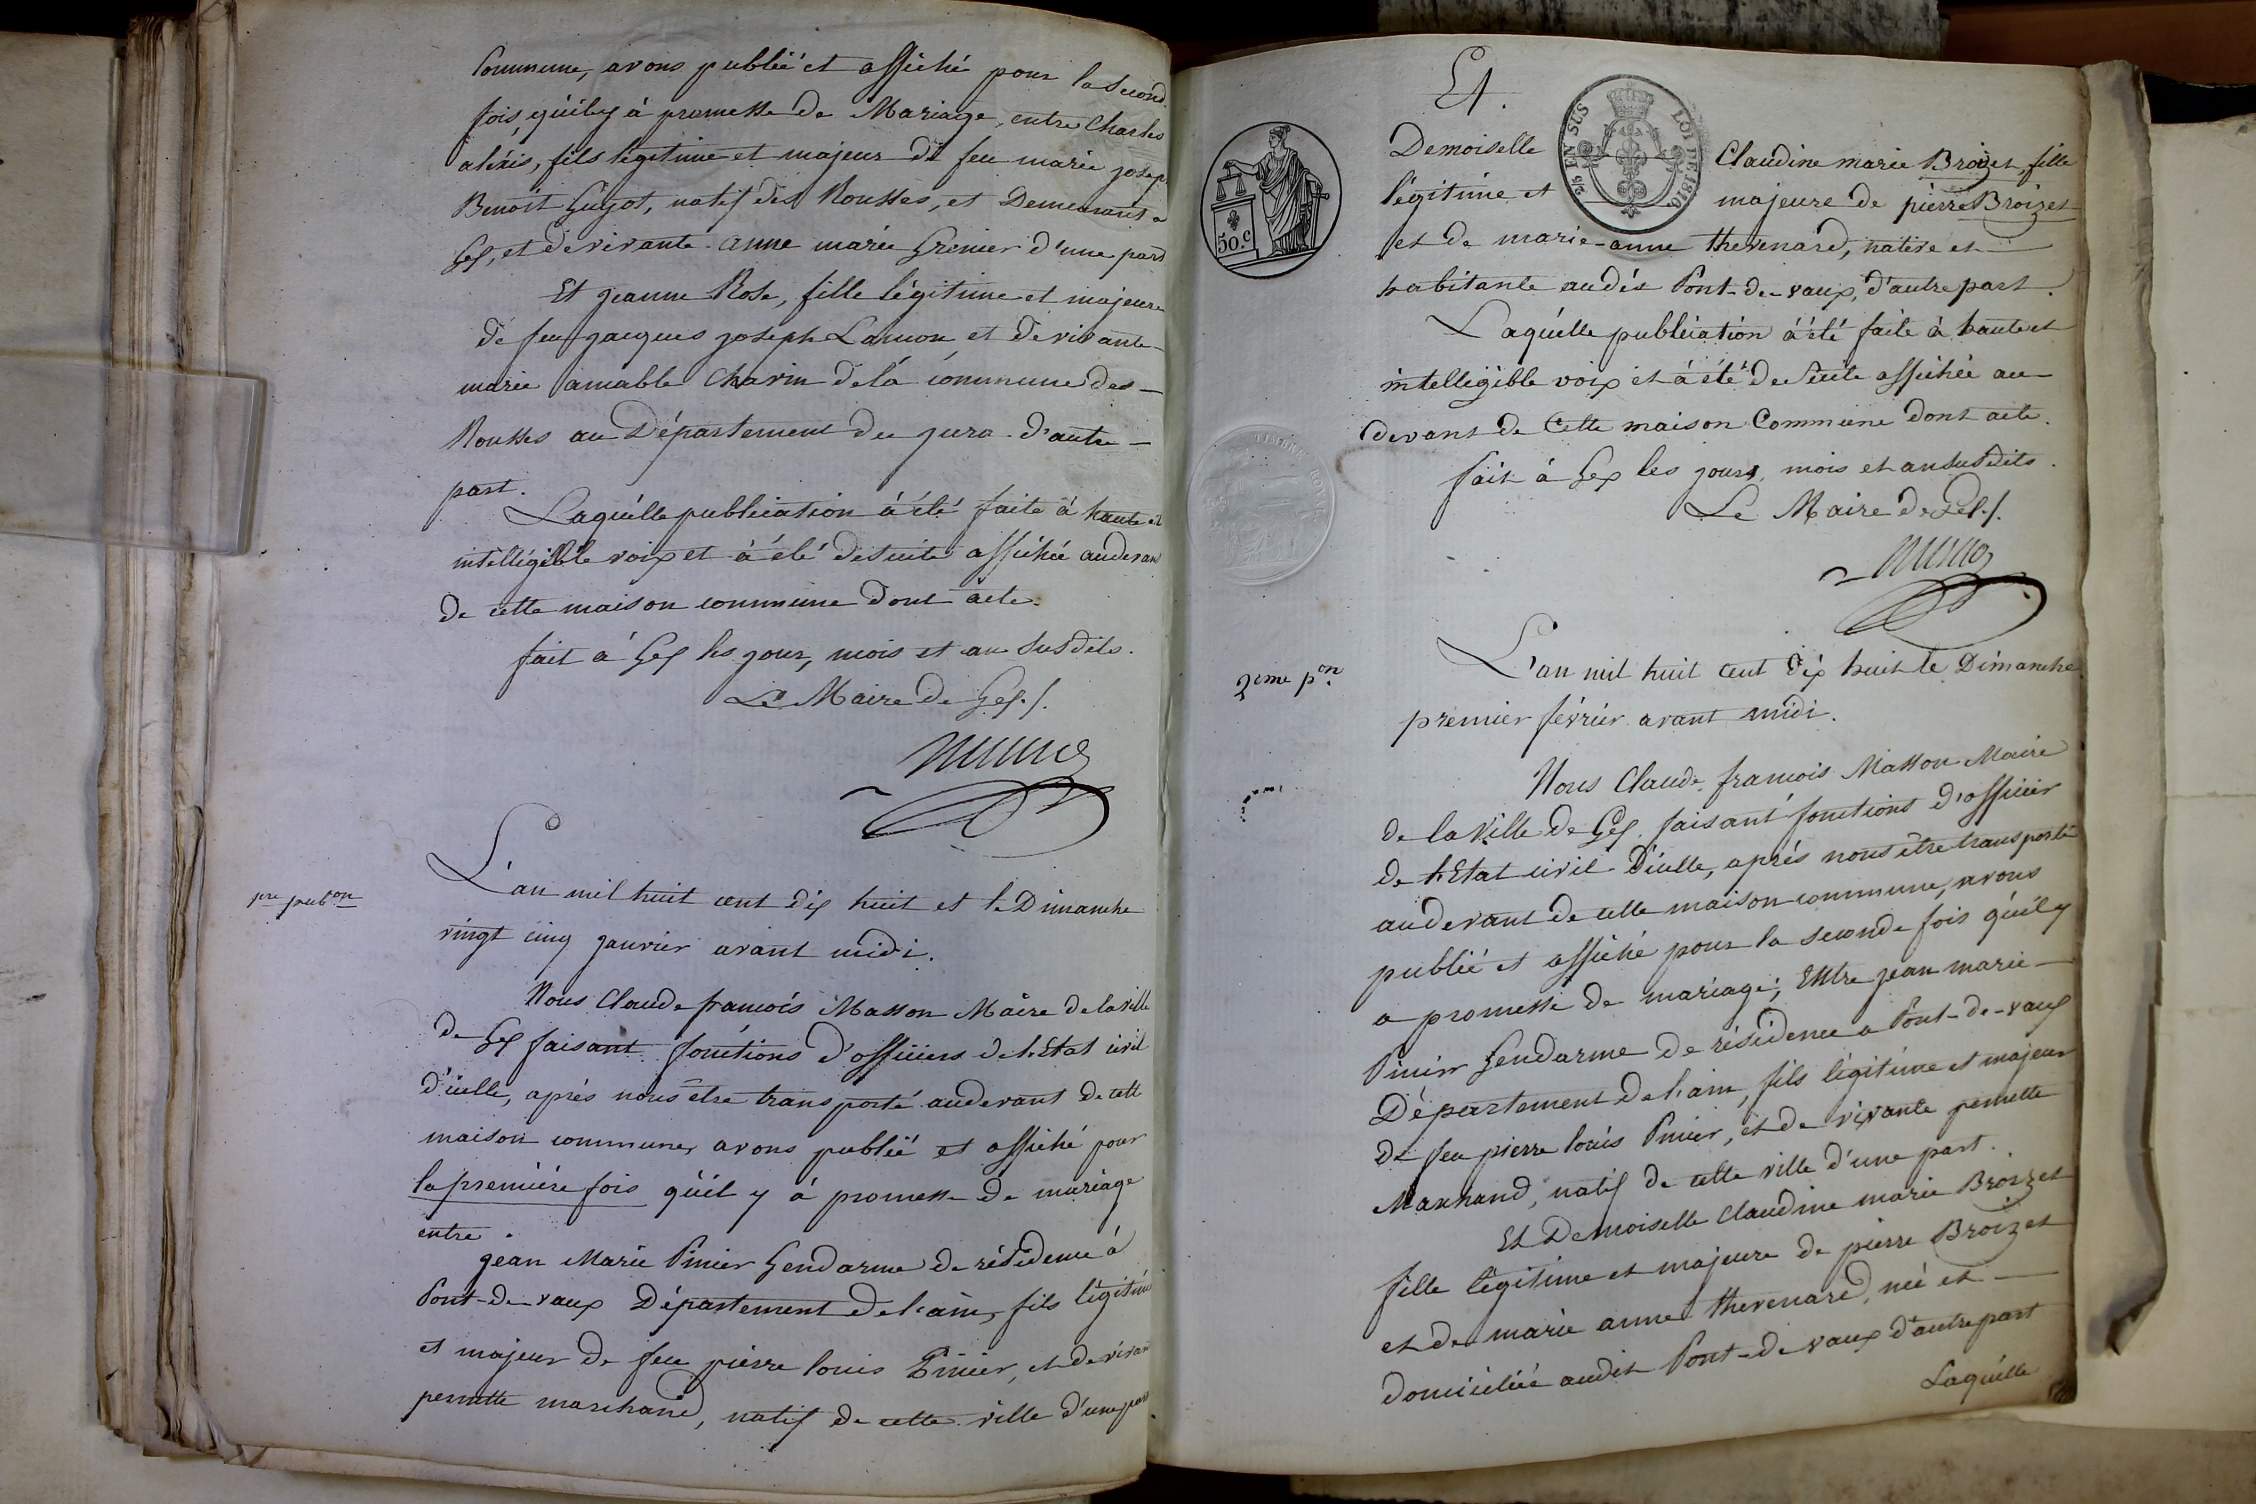 Commune, avons publié et affiché pour la second
fois, qu'il y à promesse de Mariage, entre Charles
aléxis, fils légitime et majeur de feu marie josep
Benoit Guyot, natif des Rousses, et Demeurant a
Gex, et de vivante anne marie Grenier d'une part
Et jeanne Rose, fille légitime et majeure
de feu jacques joseph Lamon, et de vivante
marie amable Chavin dela commune des
Rousses au Département du jura d'autre
part.
Laquélle publication à été faite à haute et
intelligible voix et à été desuite affichée audevan
de cette maison commune dont acte.
fait à Gex les jour, mois et an susdits.
Le Maire de Gex./.
1re pubon
L'an mil huit cent dix huit et le Dimanche
vingt cinq janvier avant midi.
Nous Claude francois Masson Maire de la ville
de Gex faisant fonctions d'officiers de l'Etat civil
d'icelle, aprés nous etre transporté audevant de cett
maison commune, avons publié et affiché pour
la premiére fois qu'il y à promesse de mariage
entre
jean Marie Pinier Gendarme de résidence à
Pont-de-vaux Département de l'ain, fils légitime
et majeur de feu pierre louis Pinier, et de vivan
pernette marchand, natif de cette ville d'une part
Et.
Demoiselle Claudine marie Broizet, fille
légitime et majeure de pierre Broizet
et de marie-anne thevenard, native et
habitante au dés Pont-de-vaux, d'autre part.
25 EN SUS LOI DE 1816
50.c
TIMBRE ROYAL
Laquélle publication à été faite à haute et
intelligible voix et à été de suite affichée au
devant de Cette maison Commune dont acte.
fait à Gex les jours, mois et an susdits.
Le Maire de Gex./.
2eme pon
L'an mil huit cent dix huit le Dimanche
premier février avant midi.
Nous Claude francois Masson Maire
de la Ville de Gex faisant fonctions d'officier
de l'Etat civil d'icelle, aprés nous être transporté
audevant de cette maison commune, avons
publié et affiché pour la seconde fois qu'il y
a promesse de mariage; Entre jean marie
Pinier Gendarme de résidence a Pont-de-vaux
Département de l'ain, fils légitime et majeur
de feu pierre louis Pinier, et de vivante pernette
Marchand, natif de cette ville d'une part.
Et Demoiselle Claudine marie Broizet
fille légitime et majeure de pierre Broizet
et de marie anne thevenard, née et
domiciliée audit Pont-de-vaux d'autre part
Laquélle